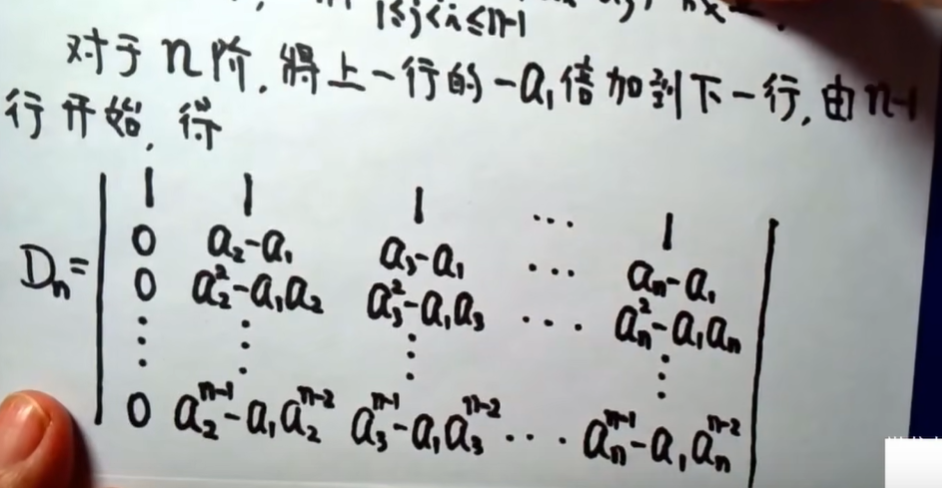 1≤j<i≤n-1
对于n阶,将上一行的-a₁倍加到下一行,由n-1
行开始,得
1 1 1 ... 1
0 a₂-a₁ a₃-a₁ ... aₙ-a₁
Dₙ=
0 a₂²-a₁a₂ a₃²-a₁a₃ ... aₙ²-a₁aₙ
0 a₂ⁿ⁻¹-a₁a₂ⁿ⁻² a₃ⁿ⁻¹-a₁a₃ⁿ⁻² ... aₙⁿ⁻¹-a₁aₙⁿ⁻²